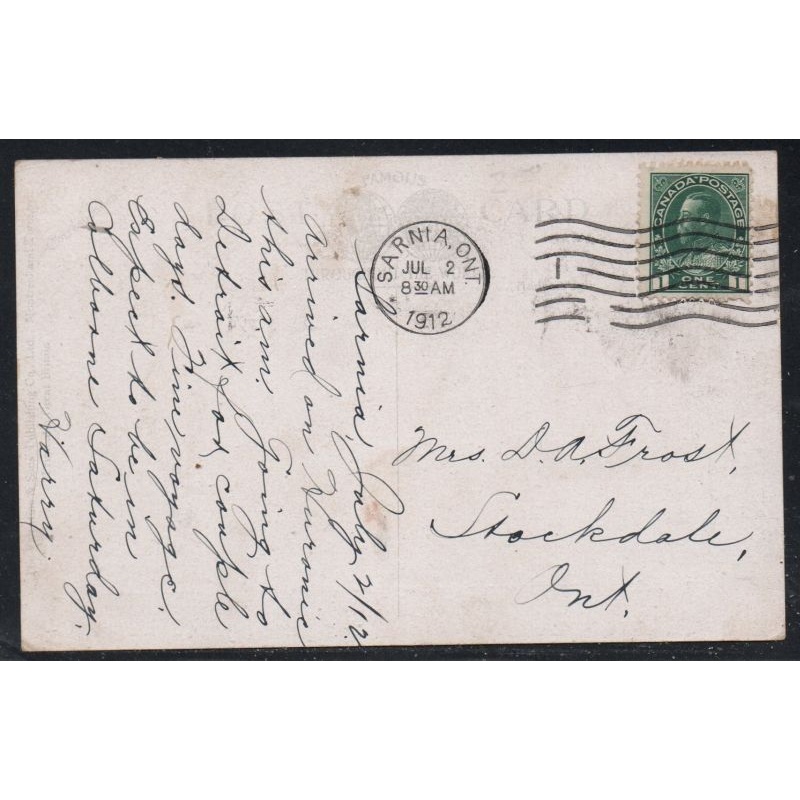 Sarnia, July 2/12.
Arrived on Huronic
this am. Going to
Detroit for couple
days. Fine voyage.
Expect to be in
Colborne Saturday.
Harry.
SARNIA, ONT.
JUL 2
8 30 AM
1912
1
CANADA POSTAGE
1 ONE CENT 1
Mrs. D. A. Frost,
Stockdale,
Ont.
CARD